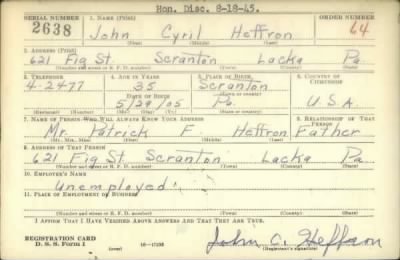 Hon. Disc. 8-18-45.
SERIAL NUMBER 1. NAME (Print) ORDER NUMBER
2638 John Cyril Heffron 64
(First) (Middle) (Last)
2. ADDRESS (Print)
621 Fig St. Scranton Lacka Pa.
(Number and street or R. F. D. number) (Town) (County) (State)
3. TELEPHONE 4. AGE IN YEARS 5. PLACE OF BIRTH 6. COUNTRY OF CITIZENSHIP
4-2477 35 Scranton
DATE OF BIRTH (Town or county)
5/29/05 Pa. U.S.A.
(Exchange) (Number) (Mo.) (Day) (Yr.) (State or country)
7. NAME OF PERSON WHO WILL ALWAYS KNOW YOUR ADDRESS 8. RELATIONSHIP OF THAT PERSON
Mr. Patrick F Heffron Father
(Mr., Mrs., Miss) (First) (Middle) (Last)
9. ADDRESS OF THAT PERSON
621 Fig St. Scranton Lacka Pa
(Number and street or R. F. D. number) (Town) (County) (State)
10. EMPLOYER'S NAME
Unemployed
11. PLACE OF EMPLOYMENT OR BUSINESS
(Number and street or R. F. D. number) (Town) (County) (State)
I AFFIRM THAT I HAVE VERIFIED ABOVE ANSWERS AND THAT THEY ARE TRUE.
REGISTRATION CARD
D. S. S. Form 1 (over) John C. Heffron
(Registrant's signature)